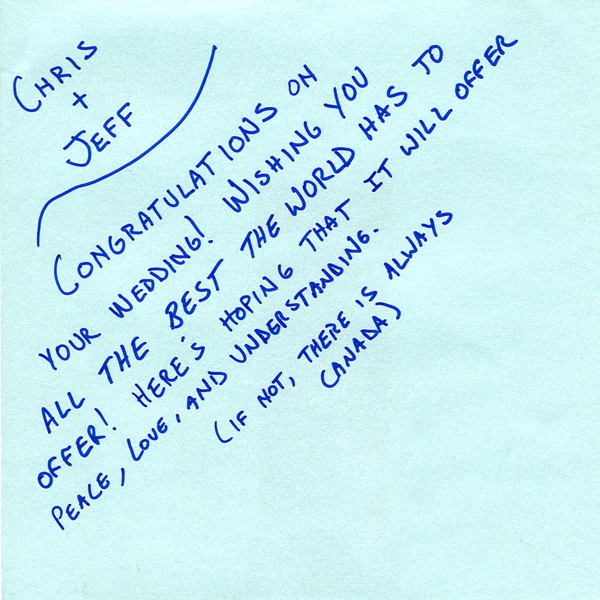 CHRIS
+
JEFF
CONGRATULATIONS ON
YOUR WEDDING! WISHING YOU
ALL THE BEST THE WORLD HAS TO
OFFER! HERE'S HOPING THAT IT WILL OFFER
PEACE, LOVE, AND UNDERSTANDING.
(IF NOT, THERE IS ALWAYS
CANADA)